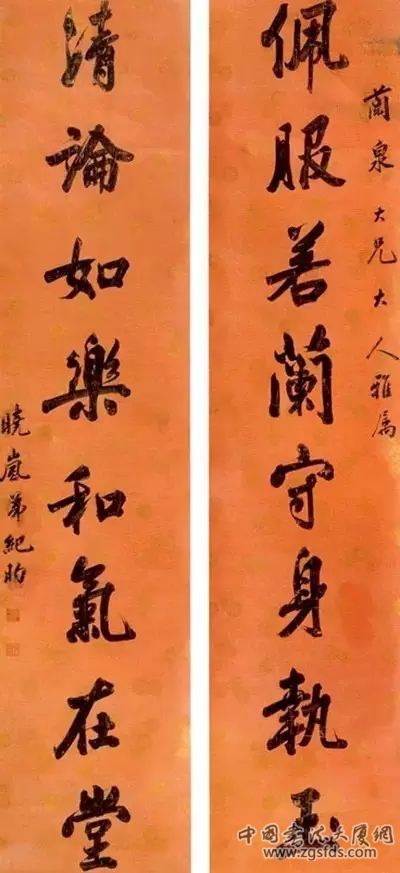 蘭泉大兄大人雅属
佩服若蘭守身執玉
清論如樂和氣在堂
曉嵐弟紀昀
中國书法大厦網
www.zgsfds.com